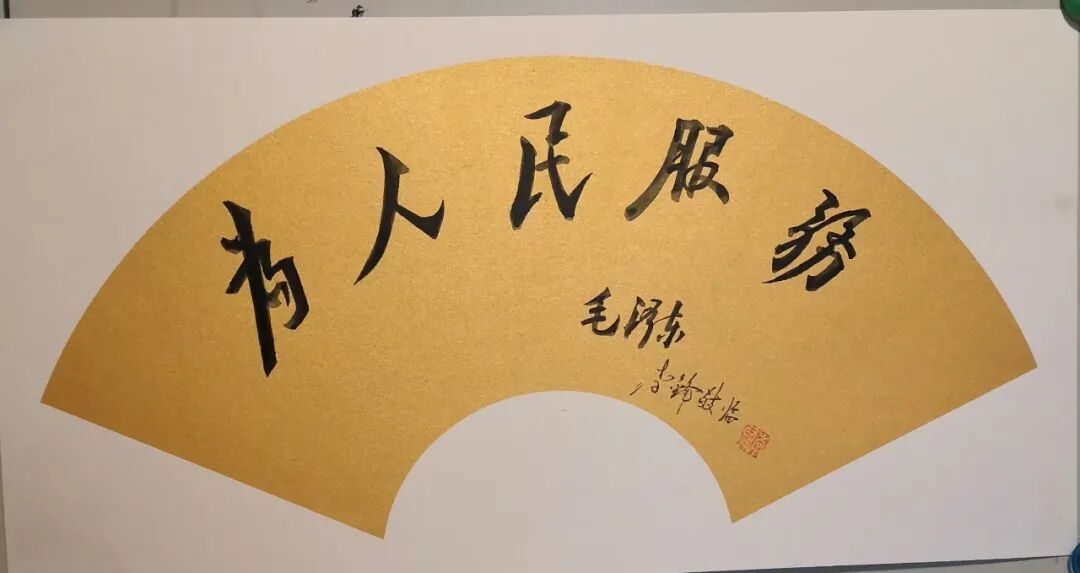 为人民服务
毛泽东
李锋敬临